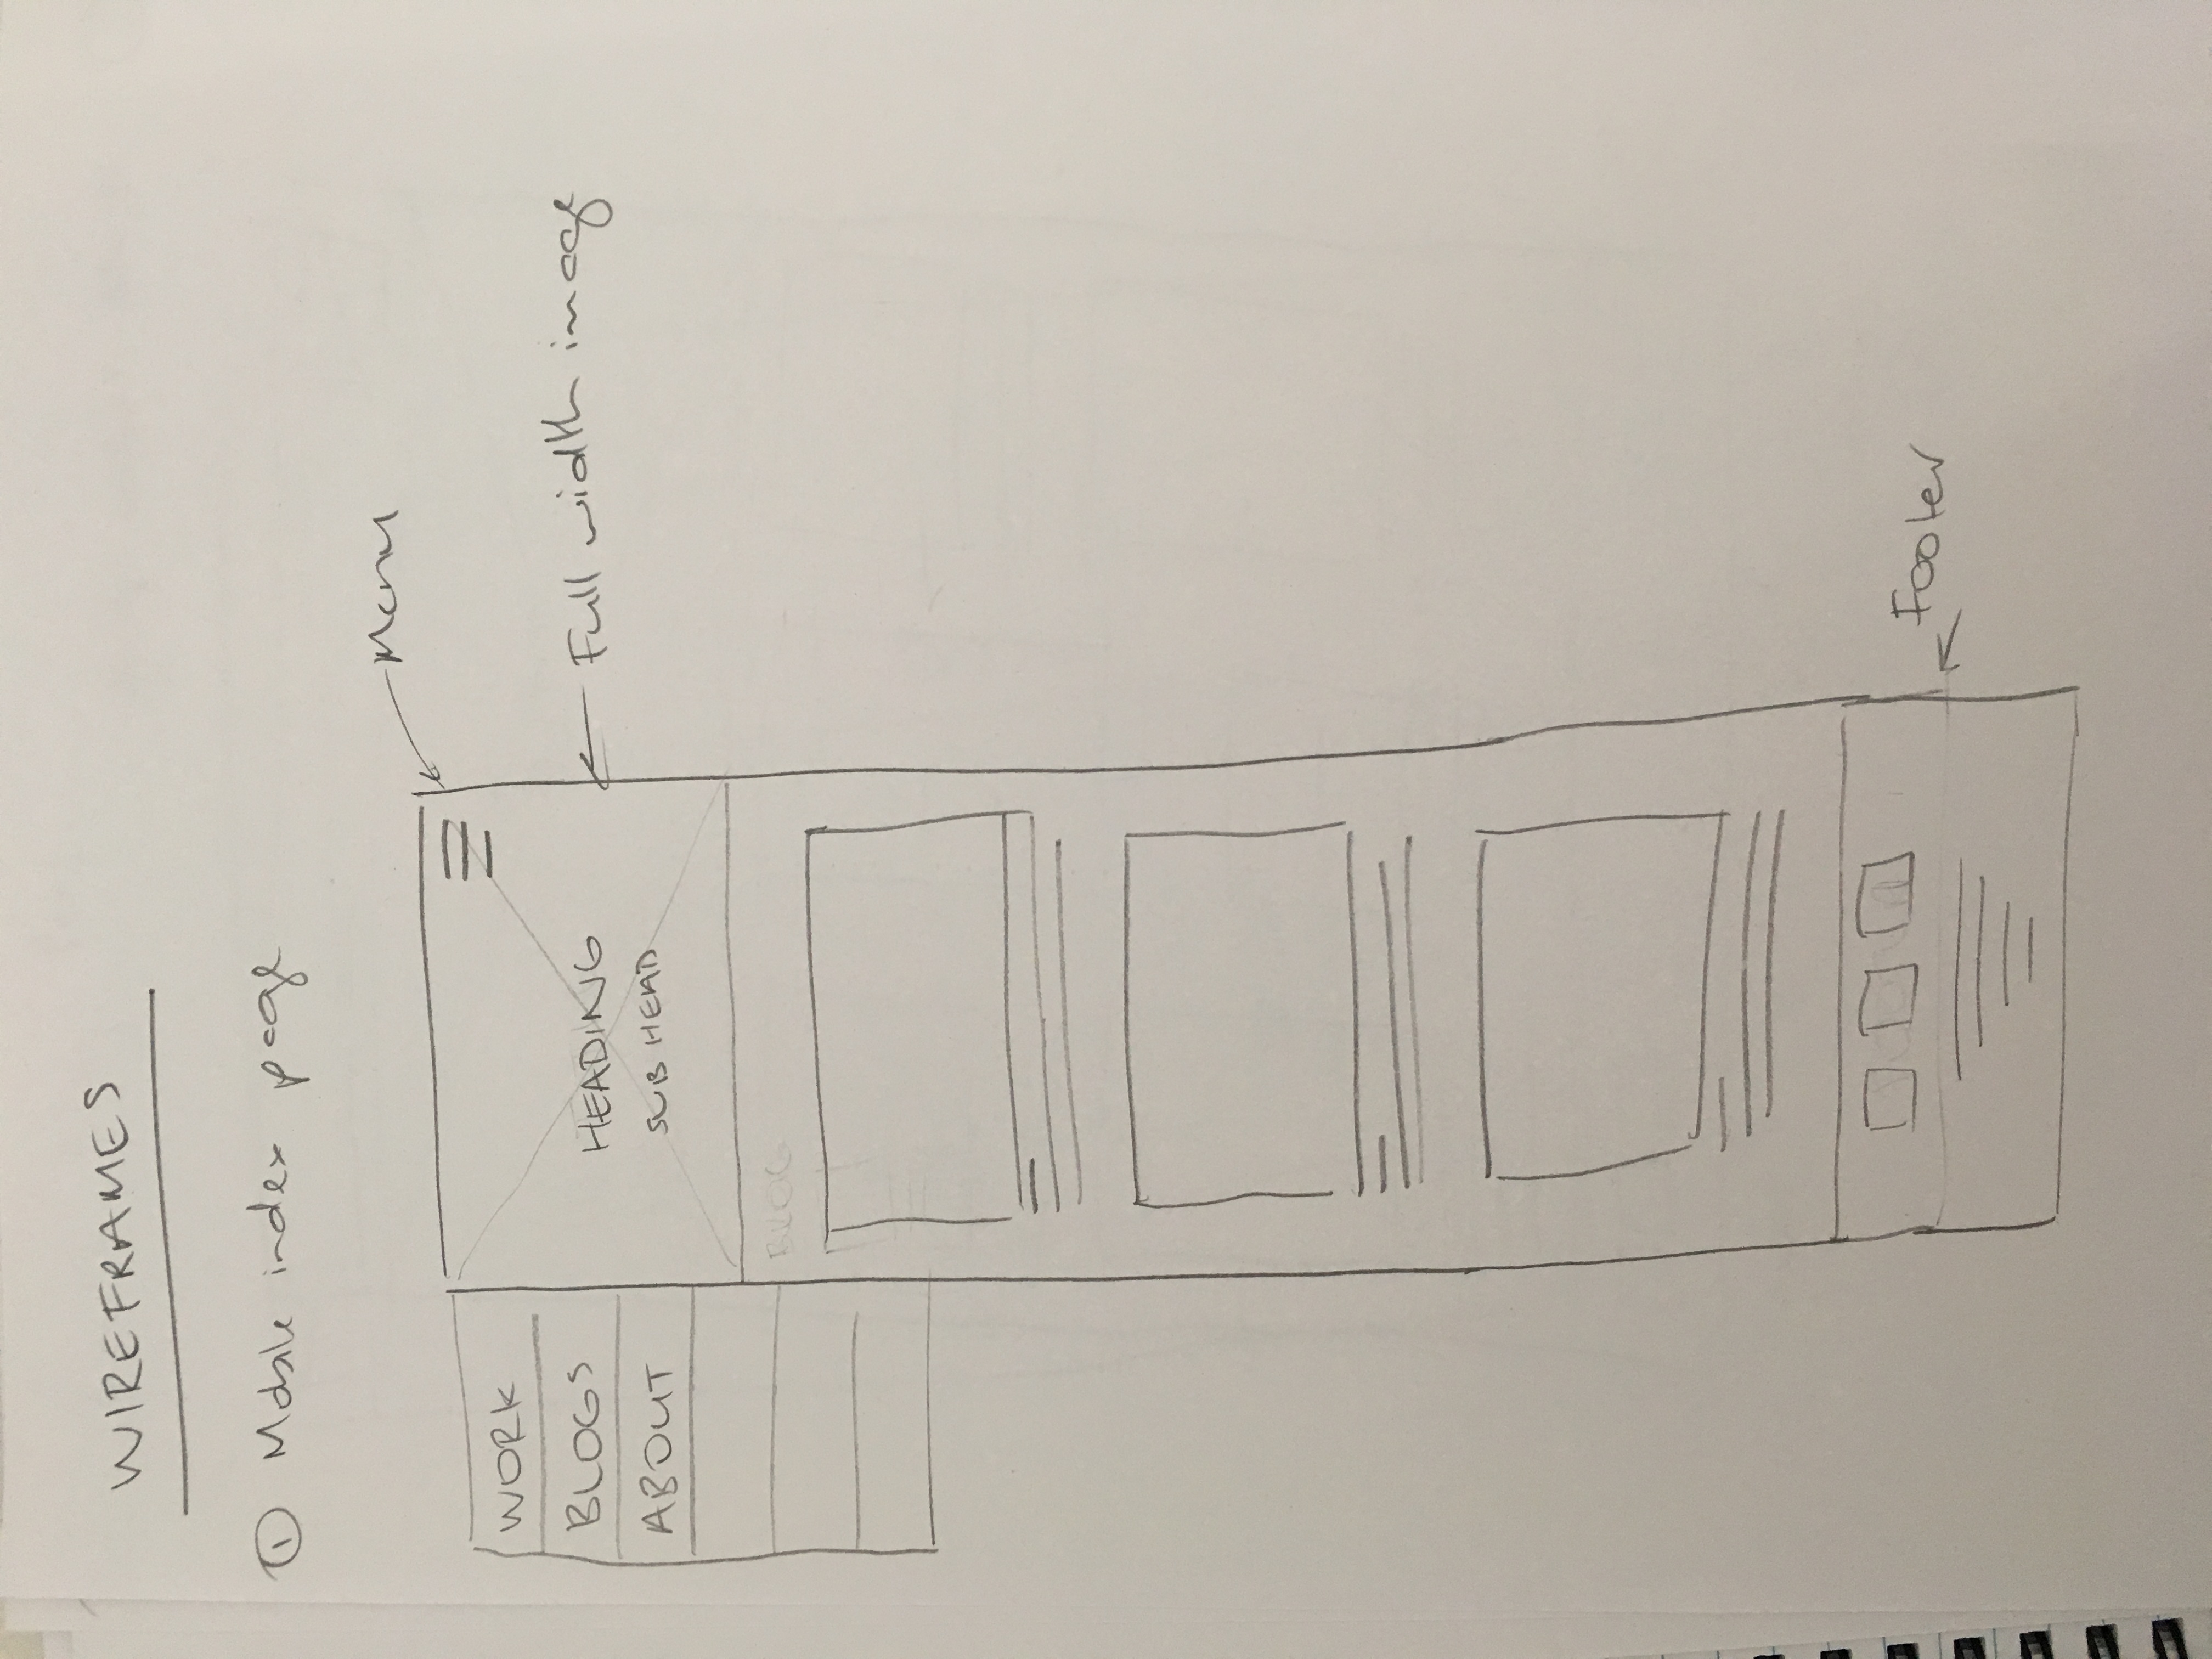 WIREFRAMES
① Mobile index page
Menu
WORK
BLOGS
ABOUT
HEADING
SUB HEAD
Full width image
BLOG
Footer